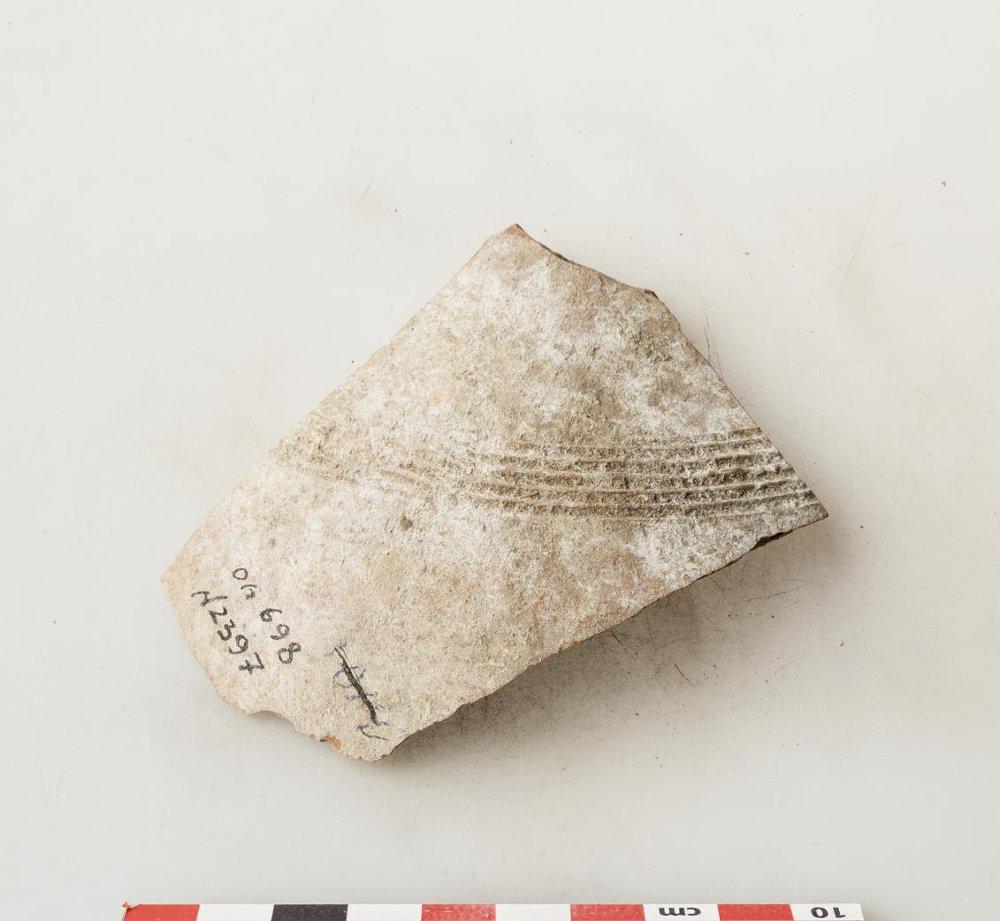 OG 698
N2397
cm 10